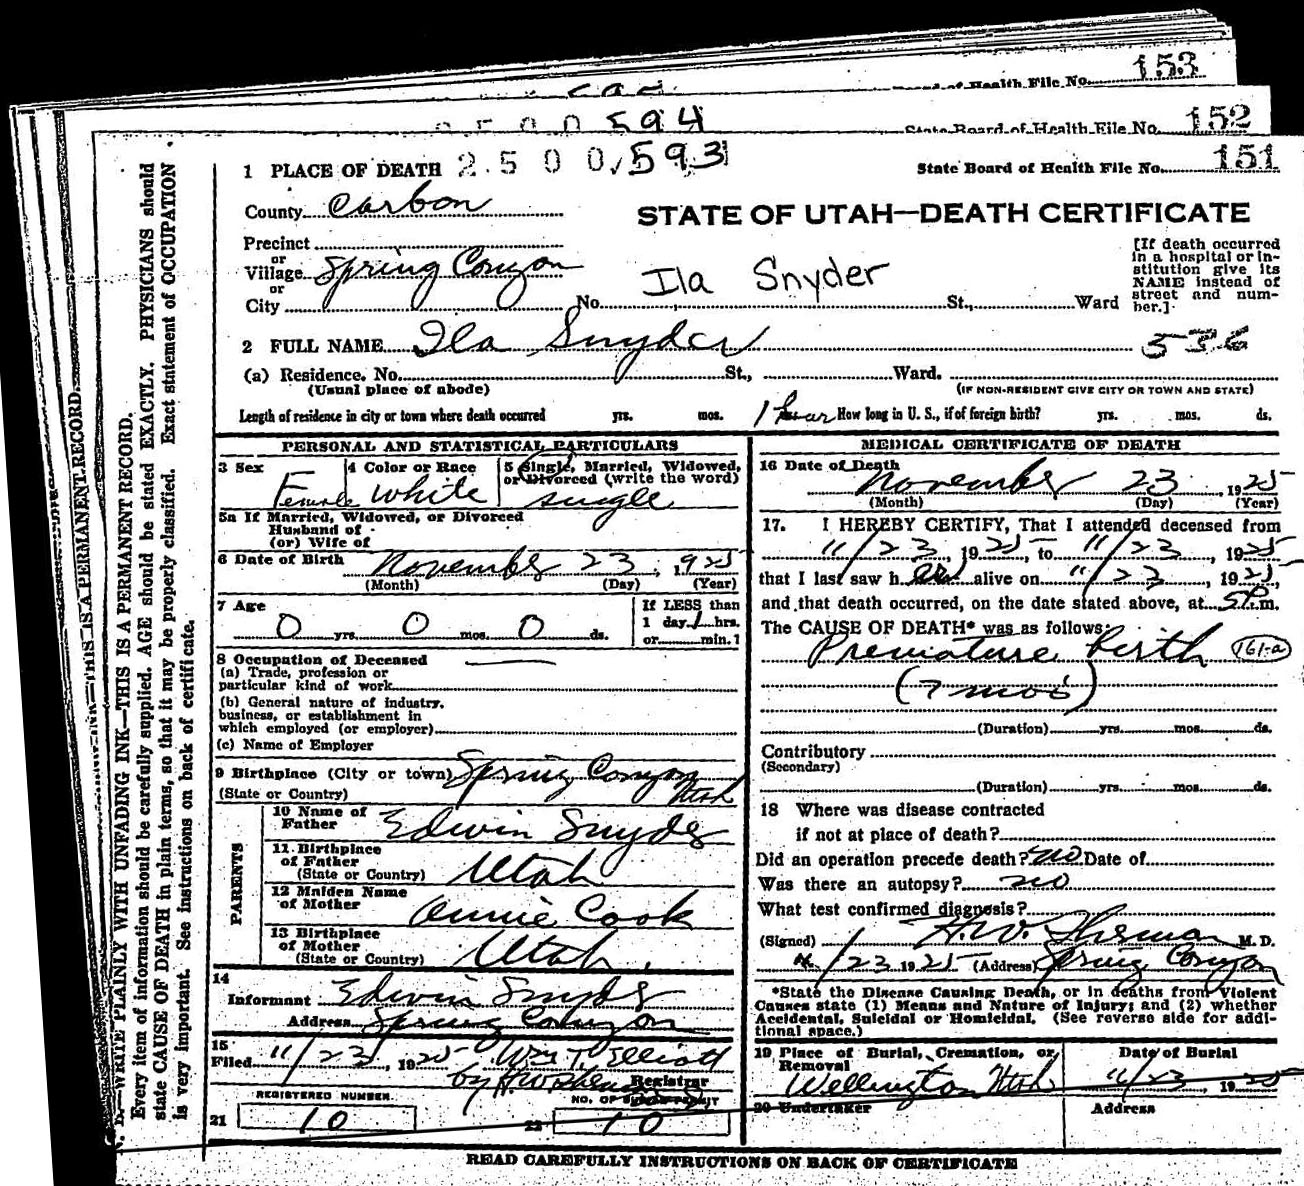 153
Board of Health File No.
2500 594
State Board of Health File No. 152
1 PLACE OF DEATH 2500 593
State Board of Health File No. 151
County Carbon
STATE OF UTAH—DEATH CERTIFICATE
Precinct
or
Village Spring Canyon
or
City
No. Ila Snyder St., Ward
[If death occurred
in a hospital or in-
stitution give its
NAME instead of
street and num-
ber.]
2 FULL NAME Ila Snyder 536
(a) Residence. No. St., Ward.
(Usual place of abode)
(IF NON-RESIDENT GIVE CITY OR TOWN AND STATE)
Length of residence in city or town where death occurred yrs. mos. 1 hour How long in U. S., if of foreign birth? yrs. mos. ds.
PERSONAL AND STATISTICAL PARTICULARS
3 Sex
Female
4 Color or Race
White
5 Single, Married, Widowed,
or Divorced (write the word)
single
5a If Married, Widowed, or Divorced
Husband of
(or) Wife of
6 Date of Birth November 23, 1925
(Month) (Day) (Year)
7 Age
0 yrs. 0 mos. 0 ds.
If LESS than
1 day 1 hrs.
or min. 1
8 Occupation of Deceased
(a) Trade, profession or
particular kind of work
(b) General nature of industry,
business, or establishment in
which employed (or employer)
(c) Name of Employer
9 Birthplace (City or town) Spring Canyon
(State or Country) Utah
PARENTS
10 Name of
Father Edwin Snyder
11 Birthplace
of Father
(State or Country) Utah
12 Maiden Name
of Mother Annie Cook
13 Birthplace
of Mother
(State or Country) Utah.
14
Informant Edwin Snyder
Address Spring Canyon
15
Filed 11/23, 1925 Wm T. Elliott
by H.W. Sherman
Registrar
REGISTERED NUMBER
21 10
NO. OF BURIAL PERMIT
22 10
MEDICAL CERTIFICATE OF DEATH
16 Date of Death
November 23, 1925
(Month) (Day) (Year)
17. I HEREBY CERTIFY, That I attended deceased from
11/23, 1925, to 11/23, 1925
that I last saw her alive on 11/23, 1925,
and that death occurred, on the date stated above, at 5 P.m.
The CAUSE OF DEATH* was as follows:
Premature birth 161-a
(7 mos)
(Duration) yrs. mos. ds.
Contributory
(Secondary)
(Duration) yrs. mos. ds.
18 Where was disease contracted
if not at place of death?
Did an operation precede death? no Date of
Was there an autopsy? no
What test confirmed diagnosis?
(Signed) H.W. Sherman M. D.
11/23 1925 (Address) Spring Canyon
*State the Disease Causing Death, or in deaths from Violent
Causes state (1) Means and Nature of Injury; and (2) whether
Accidental, Suicidal or Homicidal. (See reverse side for addi-
tional space.)
19 Place of Burial, Cremation, or
Removal
Wellington Utah
Date of Burial
11/23, 1925
20 Undertaker
Address
READ CAREFULLY INSTRUCTIONS ON BACK OF CERTIFICATE
N. B.—WRITE PLAINLY WITH UNFADING INK—THIS IS A PERMANENT RECORD.
Every item of information should be carefully supplied. AGE should be stated EXACTLY. PHYSICIANS should
state CAUSE OF DEATH in plain terms, so that it may be properly classified. Exact statement of OCCUPATION
is very important. See instructions on back of certificate.
THIS IS A PERMANENT RECORD.